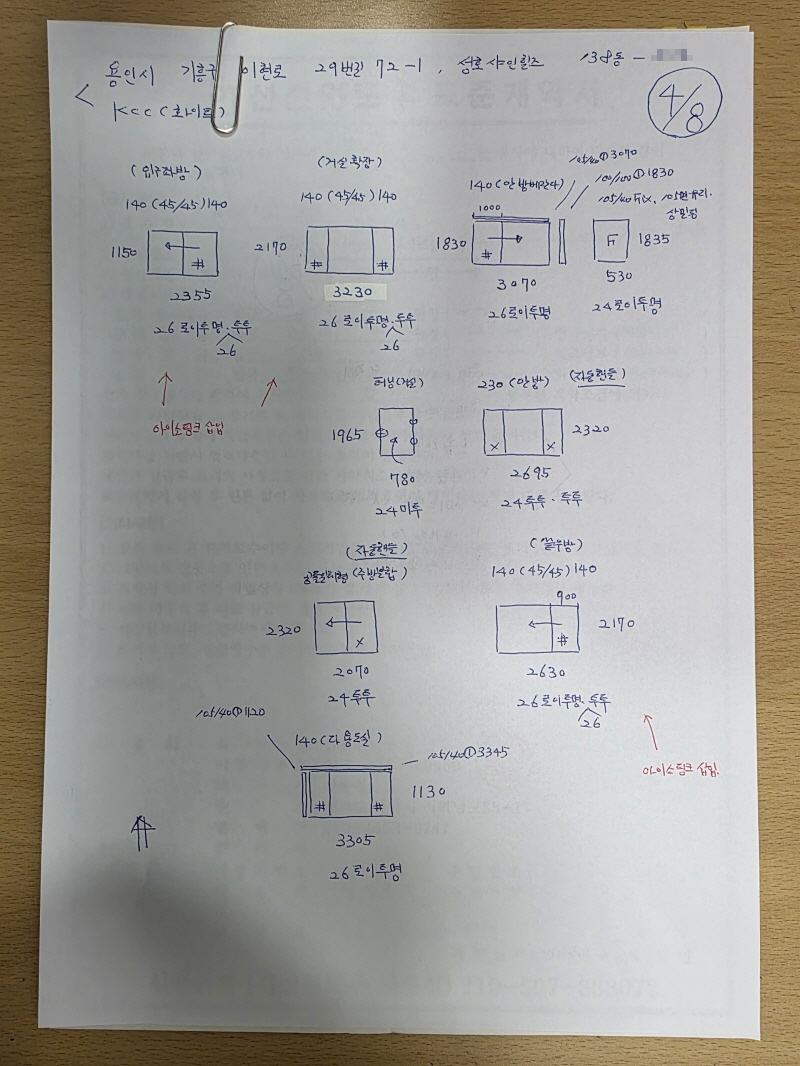 용인시 기흥구 이현로 29번길 72-1, 성호샤인힐즈 138동 -
KCC (화이트)
4/8
(입구좌방)
140 (45/45) 140
1150
#
2355
26 로이투명·투투
26
(거실확장)
140 (45/45) 140
2170
# #
3230
26 로이투명·투투
26
140 (안방베란다)
1000
1830
#
3070
26로이투명
105/40① 3070
100/100① 1830
105/40 Fix,
F
1835
530
24로이투명
아이소핑크 삽입
터닝(거실)
1965
780
24미투
230 (안방) (자동핸들)
2320
x x
2695
24투투·투투
(자동핸들)
공틀일체형 (주방분합)
2320
x
2070
24투투
140 (45/45) 140
900
2170
#
2630
26로이투명·투투
26
아이소핑크 삽입
105/40① 1120
140 (다용도실)
105/40① 3345
# #
1130
3305
26로이투명